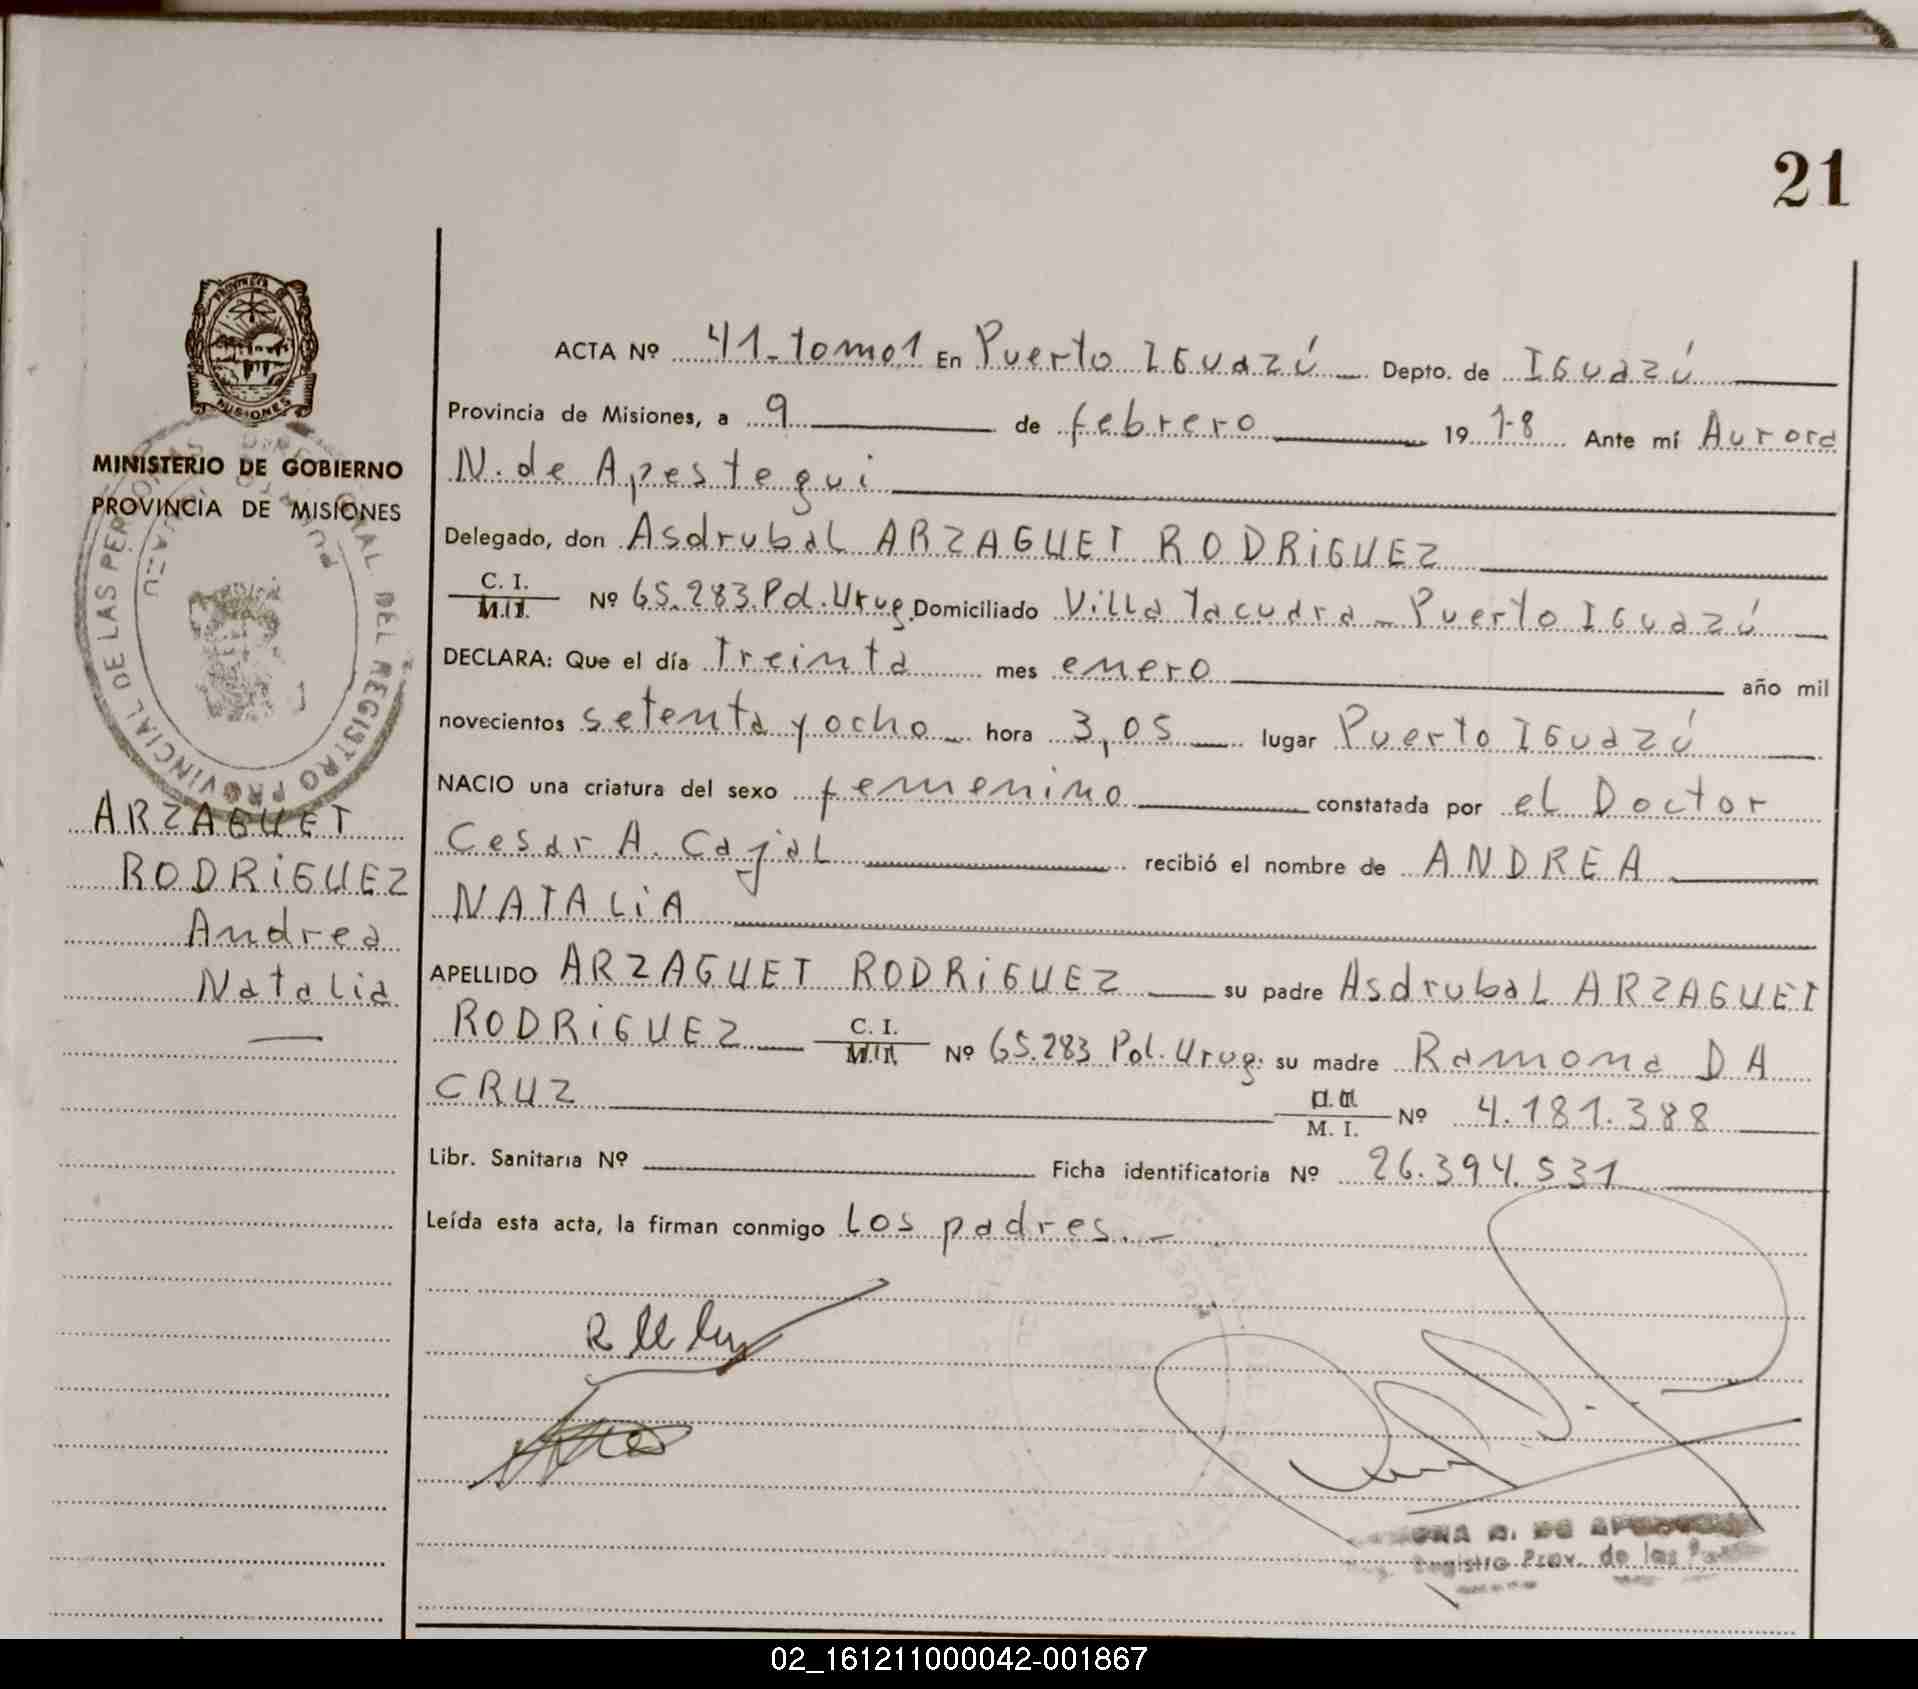 21
PROVINCIA DE
MISIONES
MINISTERIO DE GOBIERNO
PROVINCIA DE MISIONES
DEL REGISTRO PROVINCIAL DE LAS PER
ARZAGUET
RODRIGUEZ
Andrea
Natalia
ACTA Nº 41-tomo1 En Puerto IGuazú Depto. de IGuazú
Provincia de Misiones, a 9 de febrero 1978 Ante mí Aurora
N. de Apestegui
Delegado, don AsdrubaL ARZAGUET RODRIGUEZ
C. I. Nº 65.283.Pol.Urug. Domiciliado ViLLa Tacuara - Puerto IGuazú
M.I.
DECLARA: Que el día Treinta mes enero año mil
novecientos setenta y ocho hora 3,05 lugar Puerto IGuazú
NACIO una criatura del sexo femenino constatada por eL Doctor
Cesar A. CajaL recibió el nombre de ANDREA
NATALIA
APELLIDO ARZAGUET RODRIGUEZ su padre AsdrubaL ARZAGUET
RODRIGUEZ C. I. Nº 65.283 Pol.Urug. su madre Ramona DA
M.I.
CRUZ M. I. Nº 4.181.388
Libr. Sanitaria Nº Ficha identificatoria Nº 26.394.531
Leída esta acta, la firman conmigo Los padres.-
Registro Prov. de las
02_161211000042-001867